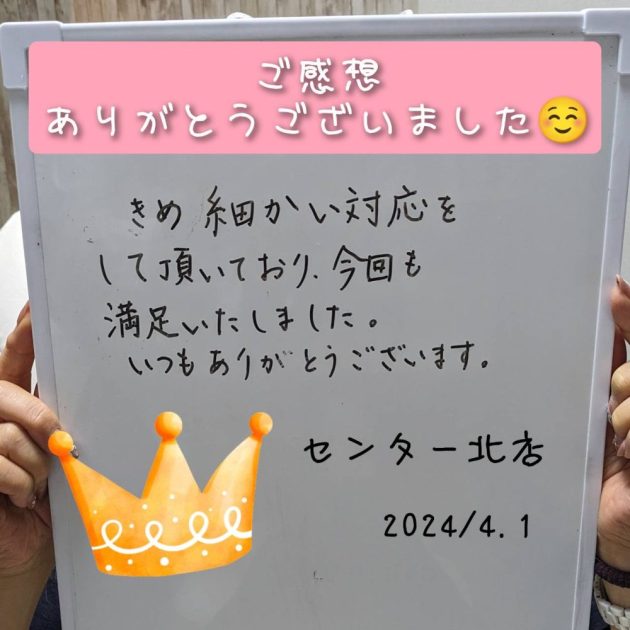 ご感想
ありがとうございました☺️
きめ細かい対応を
して頂いており、今回も
満足いたしました。
いつもありがとうございます。
センター北店
2024/4.1